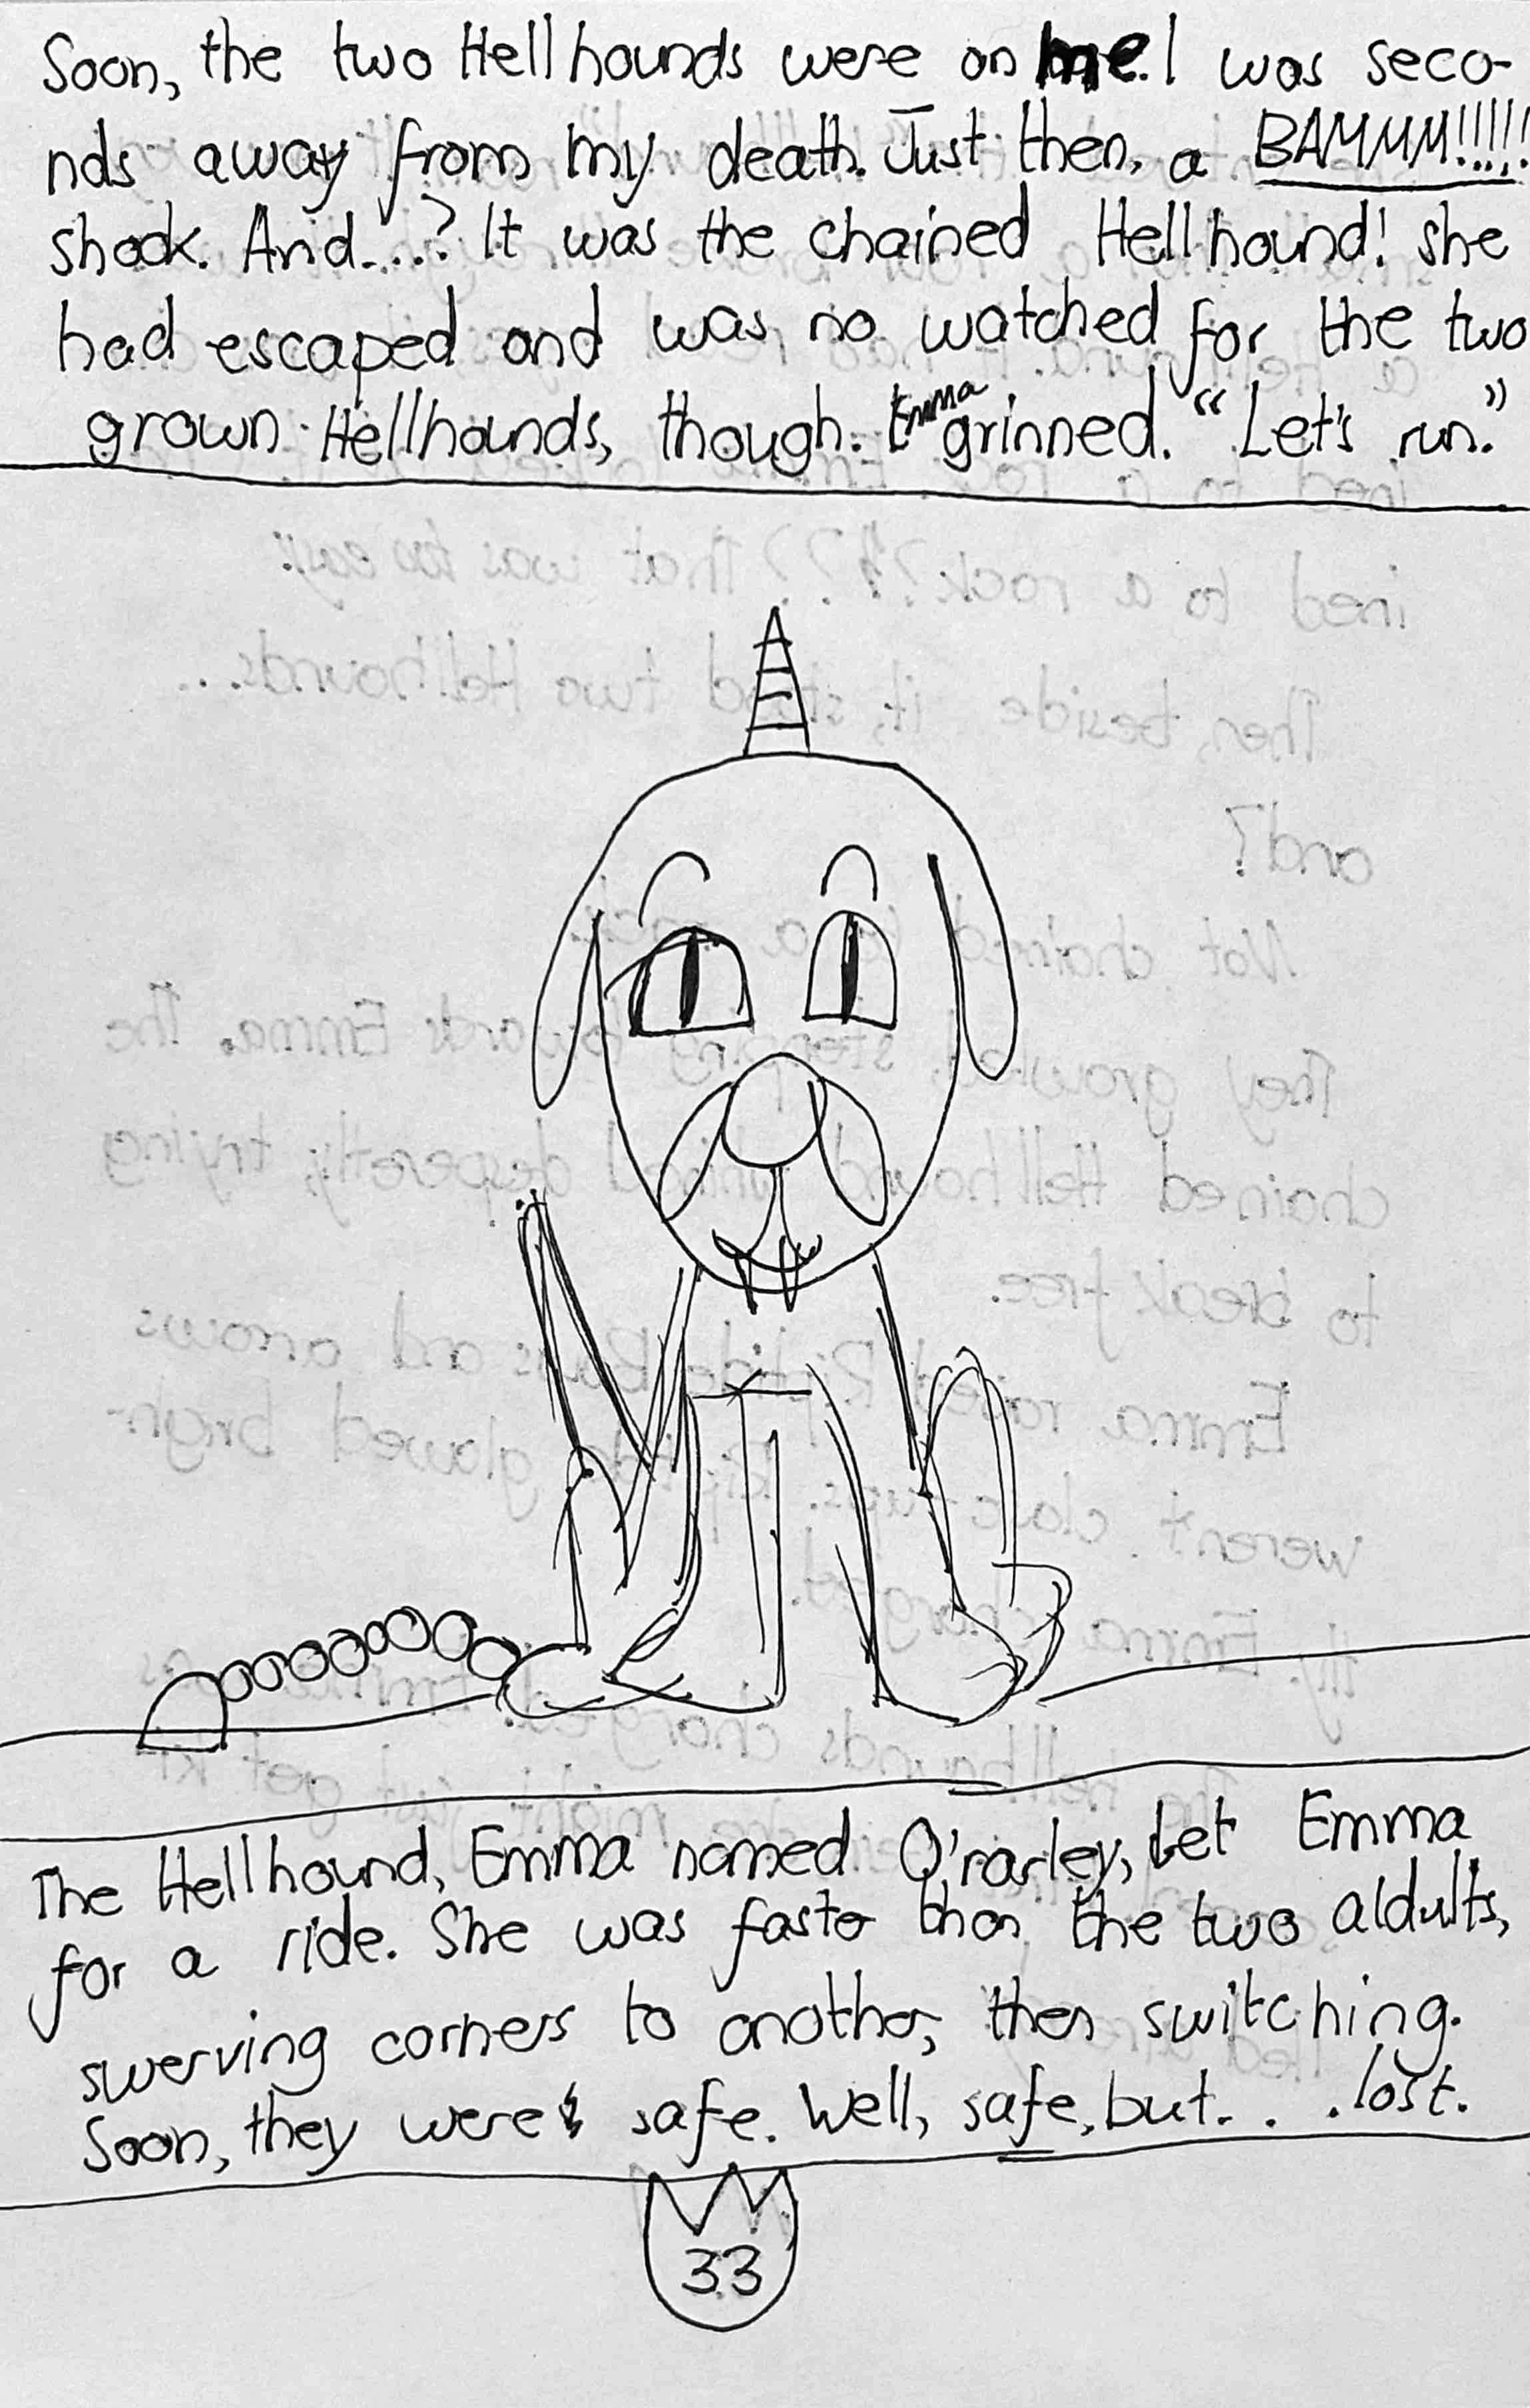 Soon, the two Hellhounds were on me. I was seco-
nds away from my death. Just then, a BAMMM!!!!!
shook. And....? It was the chained Hellhound! she
had escaped and was no watched for the two
grown Hellhounds, though. Emma grinned. “Let's run.”
The Hellhound, Emma named O'rarley, Let Emma
for a ride. She was faster than the two aldults,
swerving corners to another, then switching.
Soon, they were safe. Well, safe, but. . . .lost.
33